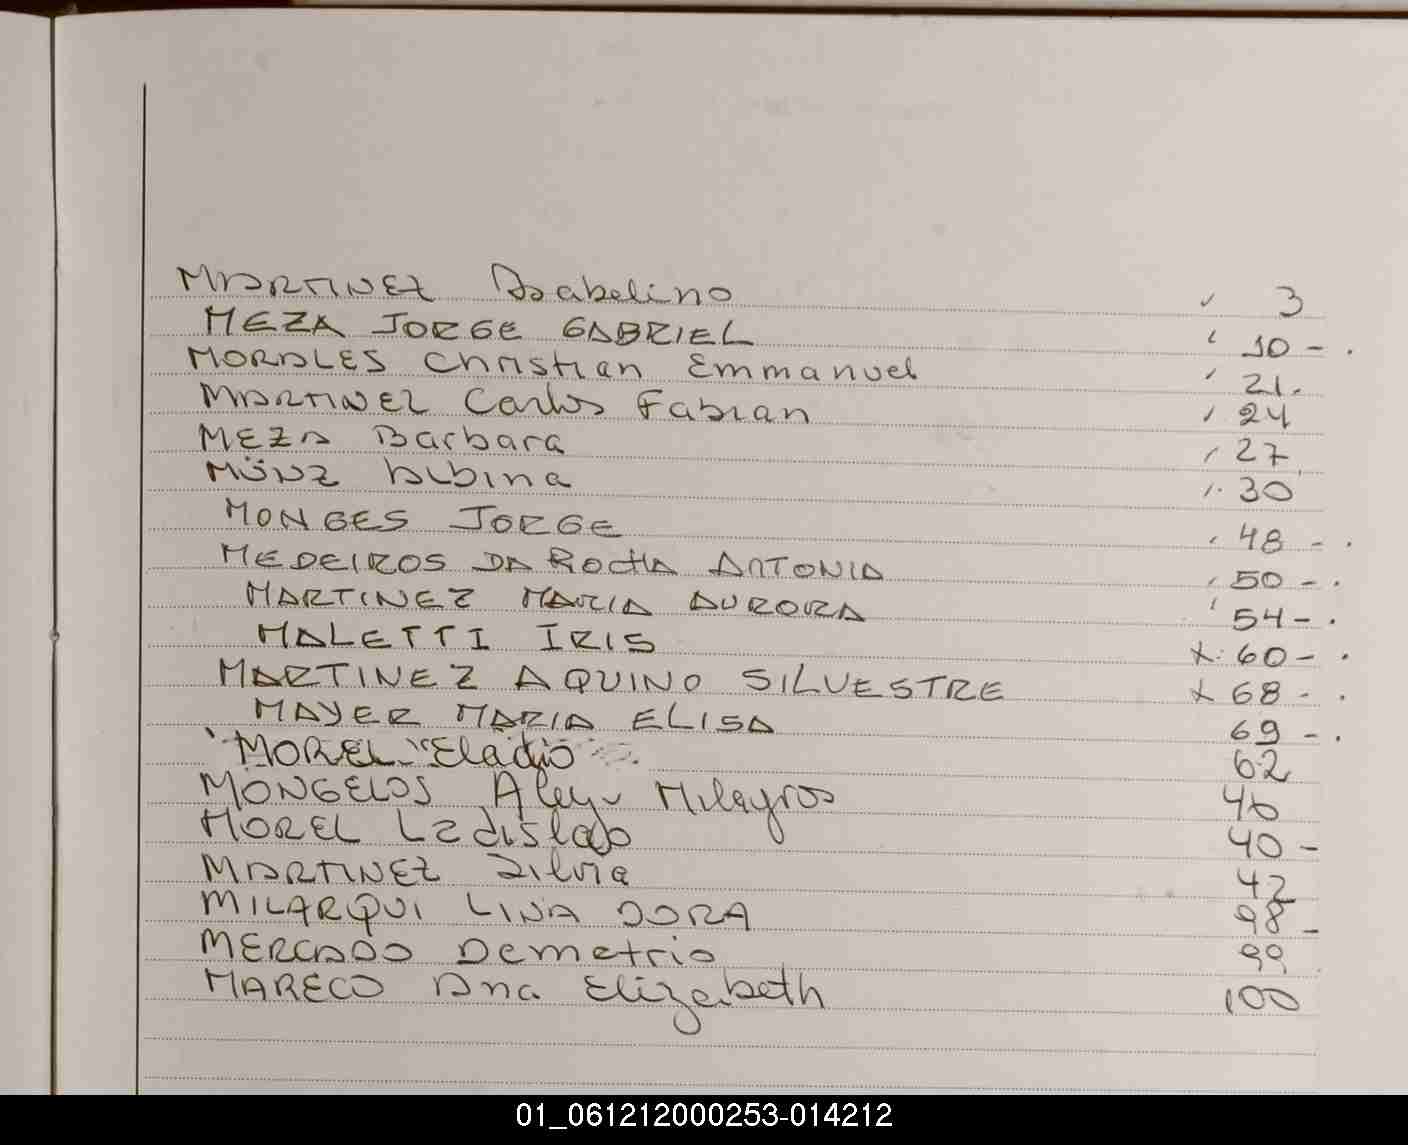 MARTINEZ Asabelino ✓ 3
MEZA JORGE GABRIEL ' 10 - .
MORALES Christian Emmanuel ' 21.
MARTINEZ Carlos Fabian ' 24
MEZA Barbara ' 27
MÜNZ Albina '. 30
MONGES JORGE ' 48 - .
MEDEIROS DA ROCHA ANTONIA ' 50 - .
MARTINEZ MARIA AURORA ' 54 - .
MALETTI IRIS x. 60 - .
MARTINEZ AQUINO SILVESTRE x 68 - .
MAYER MARIA ELISA 69 - .
MOREL Eladio 62
MONGELOS Milagros
MOREL Ladislao 40 -
MARTINEZ Silvia 42
MILARQUI LINA DORA 98 -
MERCADO Demetrio 99
MARECO Ana Elizabeth 100
01_061212000253-014212